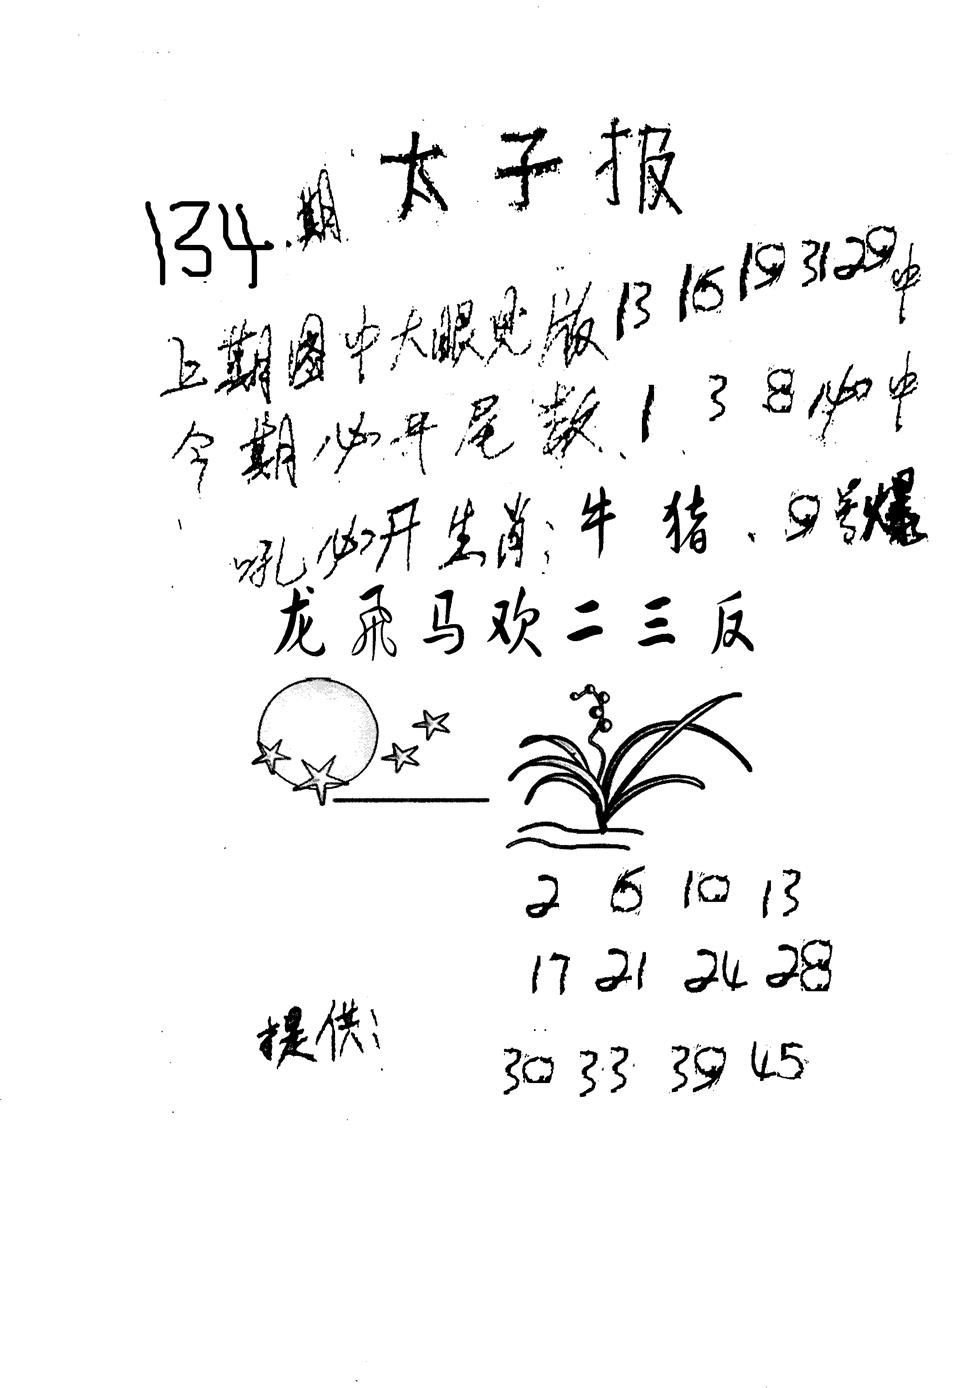 太子报
134.期
上期图中大眼见版 13 16 19 31 29 中
今期必开尾数、1 3 8 必中
吼必开生肖：牛 猪、9号爆
龙飛马欢二三反
2 6 10 13
17 21 24 28
提供：
30 33 39 45